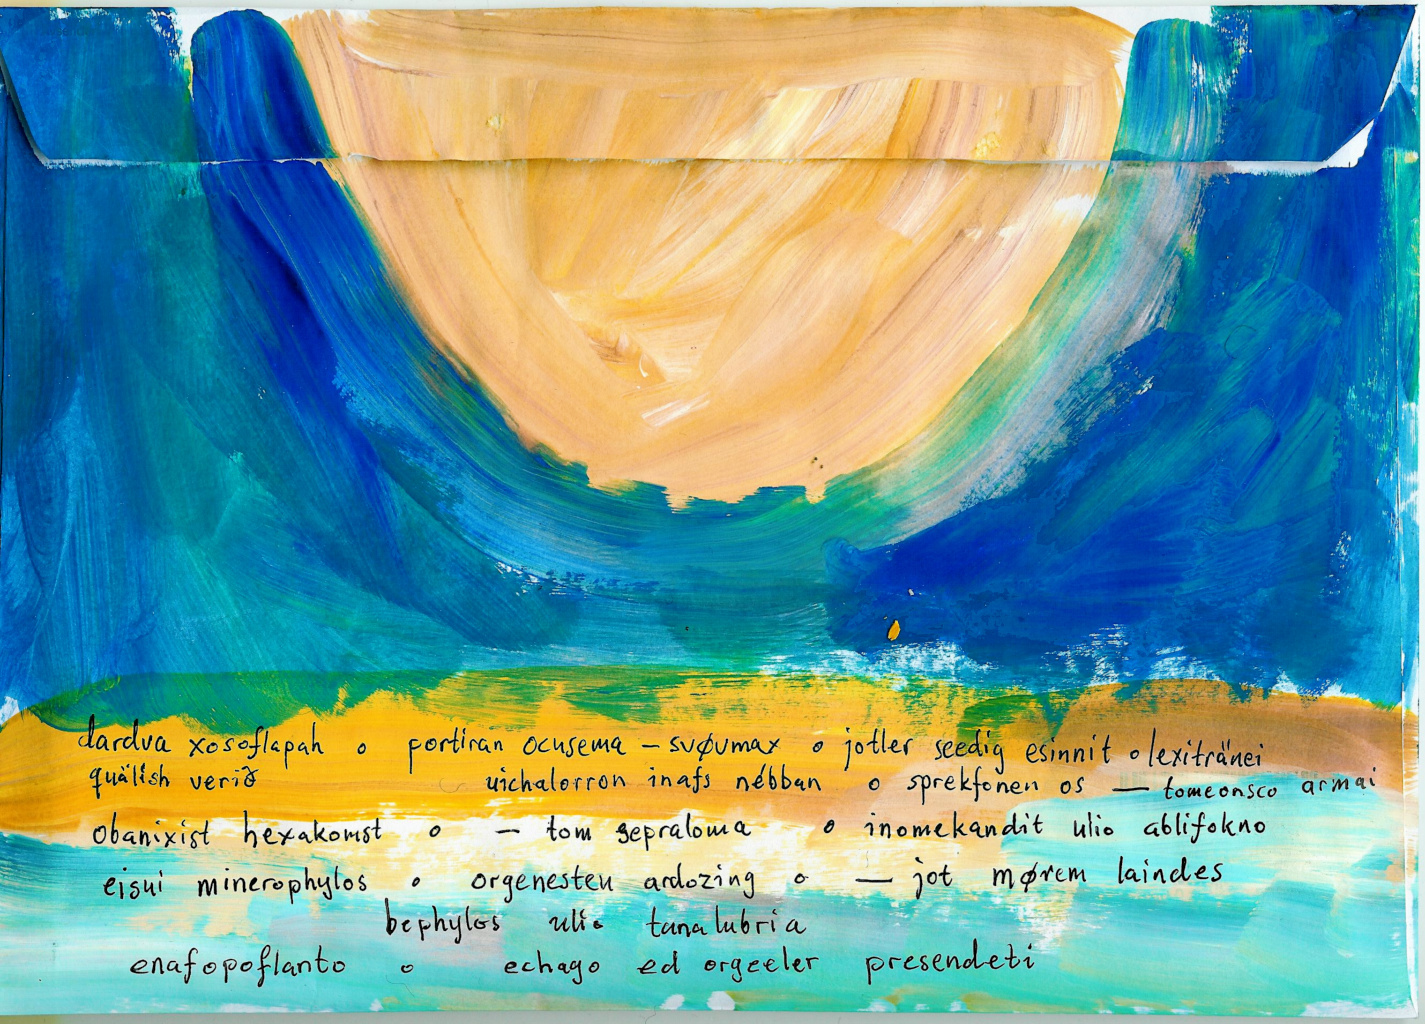 dardva xosoflapah o portiran ocusema – svøvmax o jotler seedig esinnit o lexitränei
quälish verið uichalorron inafs nébban o sprekfonen os — tomeonsco armai
obanixist hexakomst o – tom sepraloma o inomekandit ulio ablifokno
eisui minerophylos o orgenesteu ardozing o — jot mørem laindes
bephylos ulio tanalubria
enafopoflanto o echago ed orgeeler presendeti